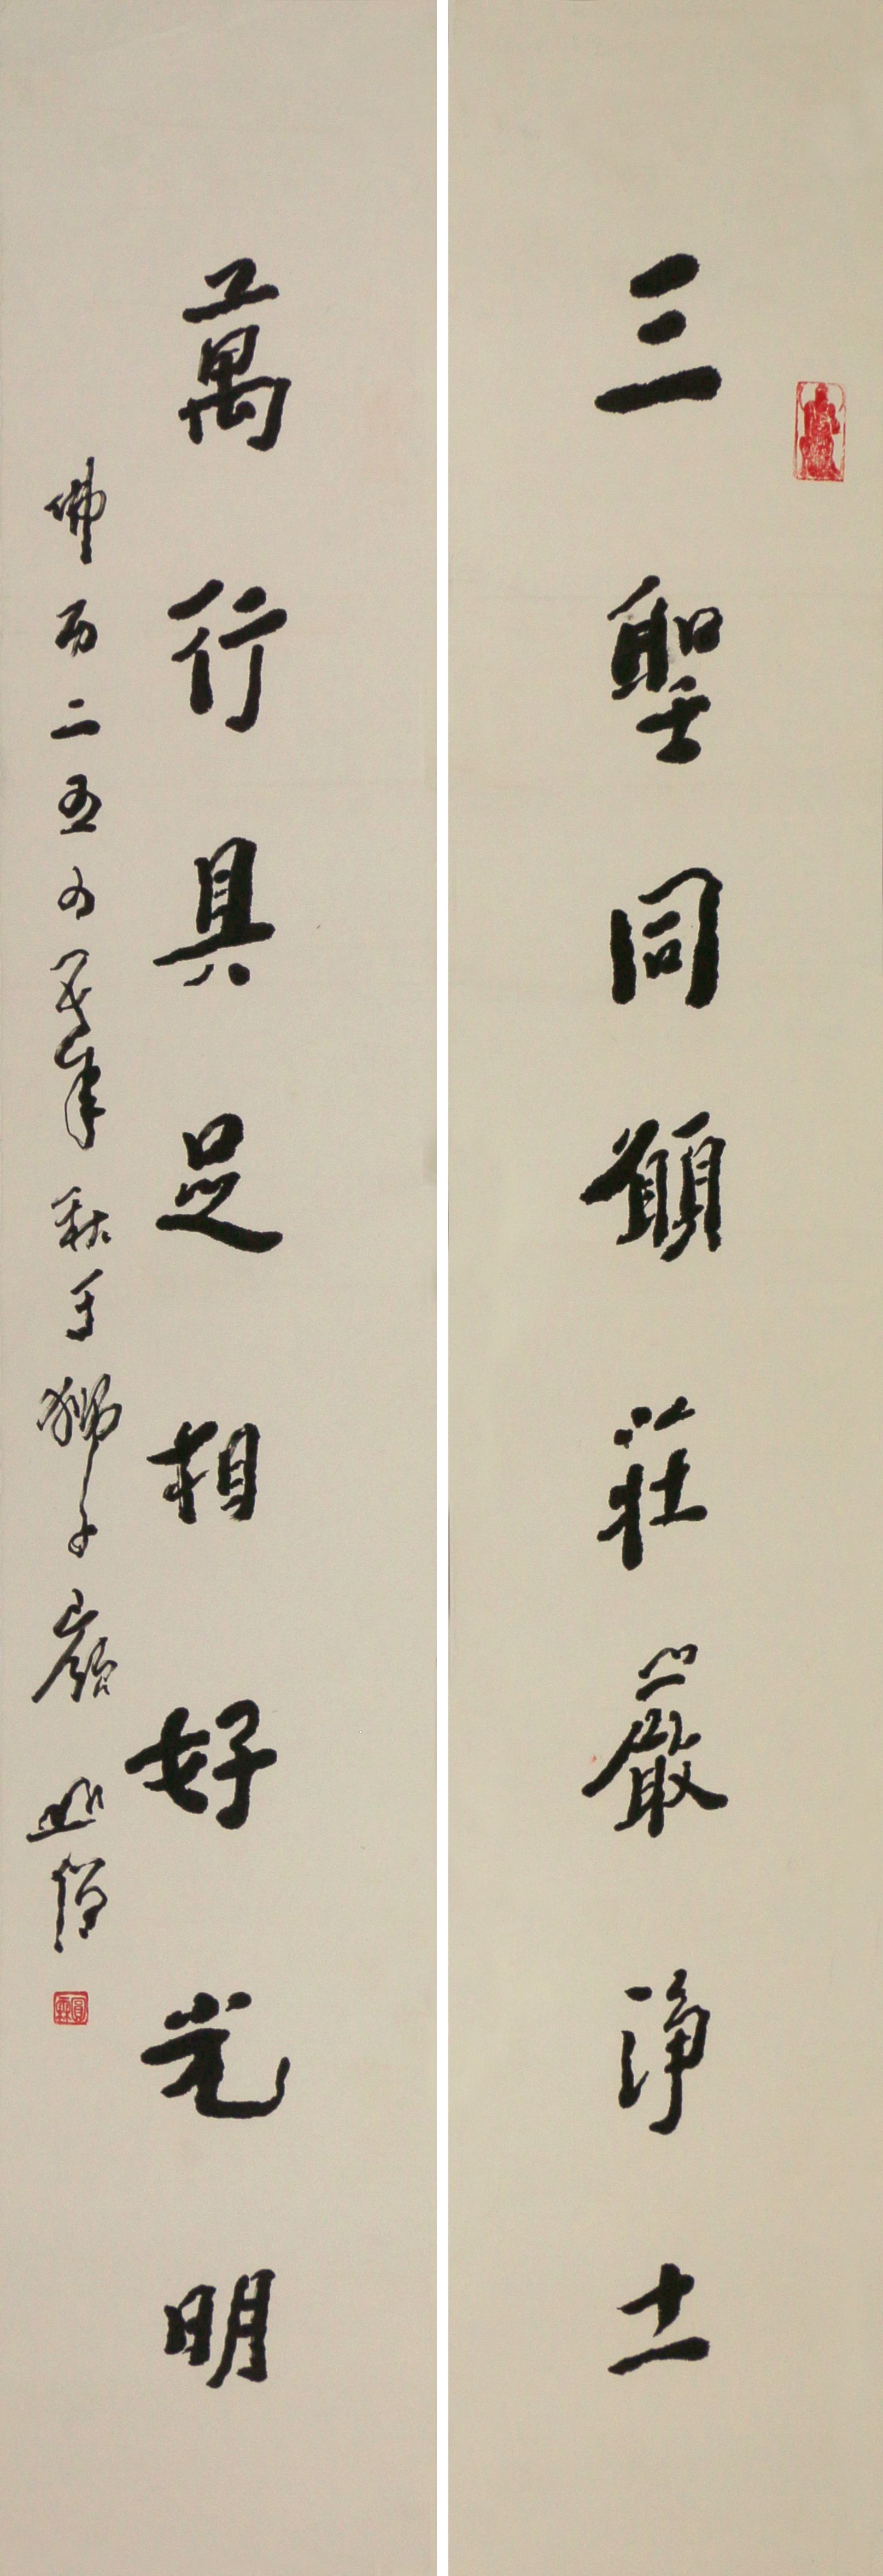 三聖同願莊嚴淨土
萬行具足相好光明
佛历二五
秋于獅子巖
僧